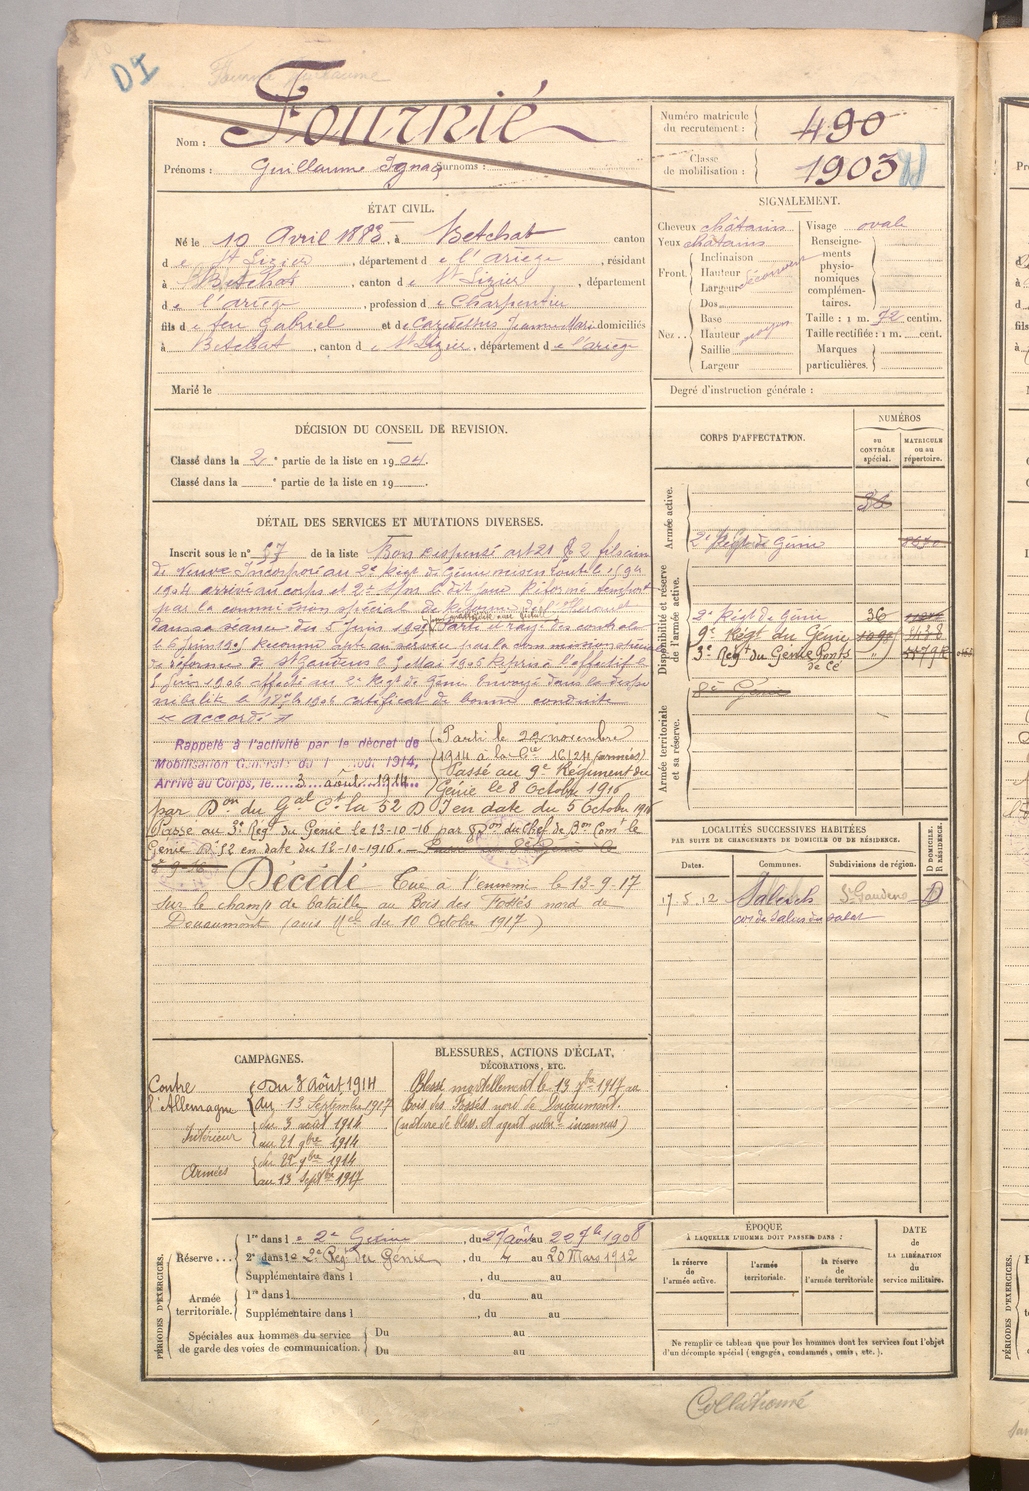 DI
Fournié Guillaume
Nom : Fournié
Prénoms : Guillaume Ignace Surnoms :
Numéro matricule du recrutement : 490
Classe de mobilisation : 1903
ÉTAT CIVIL.
Né le 10 Avril 1883, à Betchat canton
de St Lizier, département de l'ariège, résidant
à Betchat, canton de St Lizier, département
de l'ariège, profession de Charpentier
fils de feu Gabriel et de Jeanne Marie domiciliés
à Betchat, canton de St Lizier, département de l'ariège
Marié le
SIGNALEMENT.
Cheveux châtains
Yeux châtains
Front. Inclinaison
Hauteur
Largeur
Nez... Dos
Base
Hauteur
Saillie
Largeur
Visage ovale
Renseignements physionomiques complémentaires.
Taille : 1 m. 72 centim.
Taille rectifiée : 1 m. cent.
Marques particulières.
Degré d'instruction générale :
DÉCISION DU CONSEIL DE REVISION.
Classé dans la 2e partie de la liste en 1904.
Classé dans la e partie de la liste en 19
DÉTAIL DES SERVICES ET MUTATIONS DIVERSES.
Inscrit sous le n° 57 de la liste Bon Dispensé art 21 § 2 fils aîné
de veuve Incorporé au 2e Régt de Génie
1904 arrivé au corps et 2e S/m le dit jour Réformé tempore
par la commission spéciale de Réforme de l'Hérault
dans sa séance du 5 Juin 1905 Parti et rayé des controles
le 6 Juin 1905 Reconnu apte au service par la commission spéciale
de réforme de St Gaudens le 5 Mai 1906 Repris à l'effectif le
Juin 1906 affecté au 2e Régt de Génie Envoyé dans la dispo
nibilité le 1906 certificat de bonne conduite
"accordé"
Rappelé à l'activité par le décret de
Mobilisation Générale du 1 août 1914,
Arrivé au Corps, le 3 août 1914.
Parti le 22 novembre
1914 à la Cie 16/24 (armées)
Passé au 9e Régiment du
Génie le 8 Octobre 1916
par Don du Gal Ct la 52 DI en date du 5 Octobre 1916
Passé au 3e Régt du Génie le 13-10-16 par Don du Chef de Bon Comt le
Génie DI 52 en date du 12-10-1916.
Décédé Tué à l'ennemi le 13-9-17
sur le champ de bataille au Bois des Fossés nord de
Douaumont (avis du 10 Octobre 1917)
CORPS D'AFFECTATION.
NUMÉROS
au CONTRÔLE spécial.
MATRICULE ou au répertoire.
Armée active.
2e Régt de Génie
Disponibilité et réserve de l'armée active.
2e Régt de Génie 36
9e Régt du Génie
3e Régt du Génie Ponts de Cé
Armée territoriale et sa réserve.
8e Génie
LOCALITÉS SUCCESSIVES HABITÉES
PAR SUITE DE CHANGEMENTS DE DOMICILE OU DE RÉSIDENCE.
Dates.
Communes.
Subdivisions de région.
D DOMICILE. R RÉSIDENCE.
17.5.12 Saleich St Gaudens D
con de Salies du Salat
CAMPAGNES.
Contre l'Allemagne
Du 3 Août 1914
au 13 Septembre 1917
Intérieur
du 3 août 1914
au 21 9bre 1914
Armées
du 22 9bre 1914
au 13 Septbre 1917
BLESSURES, ACTIONS D'ÉCLAT, DÉCORATIONS, ETC.
Blessé mortellement le 13 7bre 1917 au
Bois des Fossés nord de Douaumont.
(nature de bless. et agent vulnt inconnus)
PÉRIODES D'EXERCICES.
Réserve....
1re dans le 2e Génie, du 27 Août au 1908
2e dans le 2e Régt du Génie, du 4 au 20 Mars 1912
Supplémentaire dans l , du au
Armée territoriale.
1re dans l , du au
Supplémentaire dans l , du au
Spéciales aux hommes du service de garde des voies de communication.
Du au
Du au
ÉPOQUE
À LAQUELLE L'HOMME DOIT PASSER DANS :
la réserve de l'armée active.
l'armée territoriale.
la réserve de l'armée territoriale
DATE de LA LIBÉRATION du service militaire.
Ne remplir ce tableau que pour les hommes dont les services font l'objet
d'un décompte spécial (engagés, condamnés, omis, etc.).
Collationné